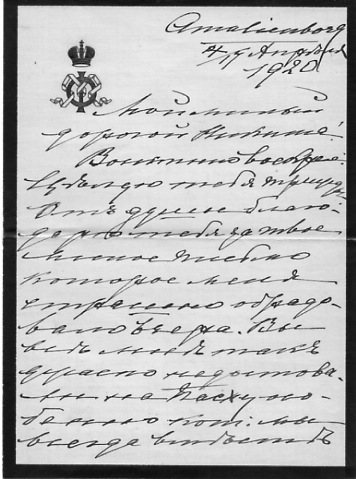 Amalienborg
4/17 Апрѣля
1920
Мой милый
дорогой Никита!
Воистину воскресе!
Цѣлую тебя трижды
Отъ души благо-
дарю тебя за твое
милое письмо
которое меня
страшно обрадо-
вало вчера. Вы
всѣ мнѣ такъ
ужасно недостова-
ли на Пасху, осо-
бенно кот: мы
всегда вмѣстѣ